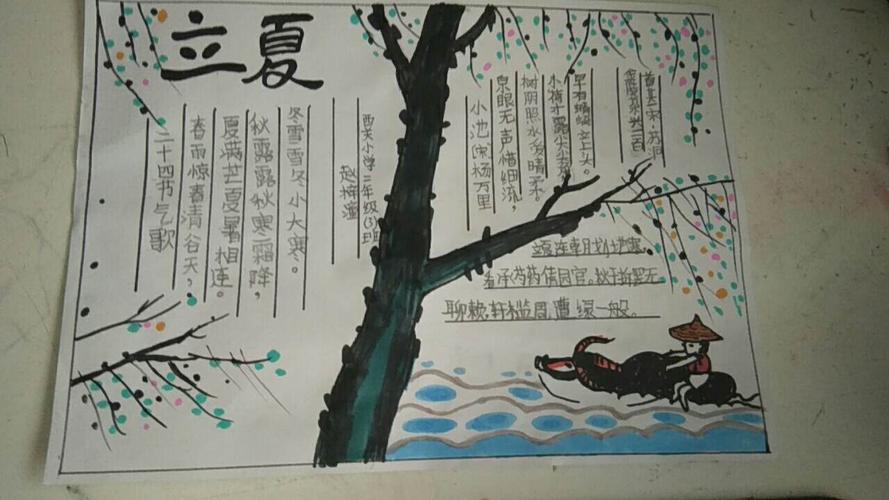 立夏
二十四节气歌
春雨惊春清谷天,
夏满芒夏暑相连。
秋露露秋寒霜降,
冬雪雪冬小大寒。
西关小学二年级(3)班
赵梓潼
小池(宋)杨万里
泉眼无声惜细流,
树阴照水爱晴柔。
小荷才露尖尖角,
早有蜻蜓立上头。
看承芍药倩园官。秋千拆罢无
聊赖,轩槛周遭绿一般。